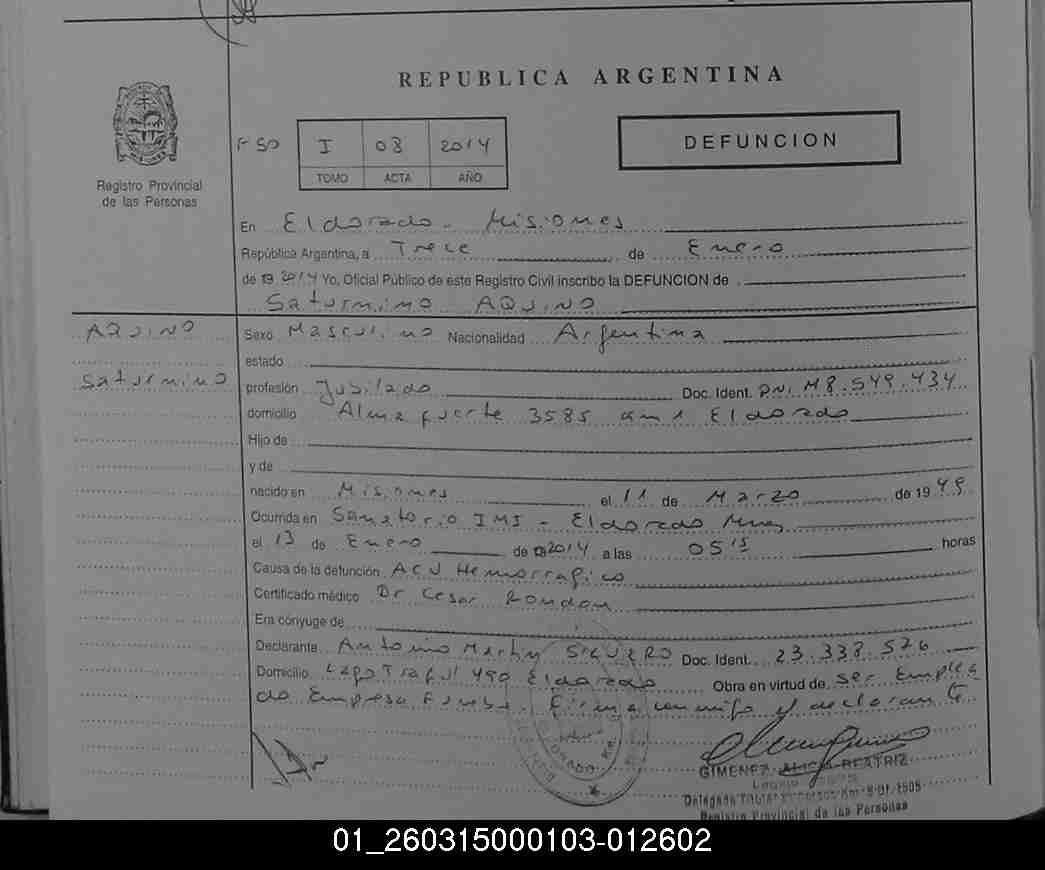 REPUBLICA ARGENTINA
Registro Provincial
de las Personas
I 03 2014
TOMO ACTA AÑO
DEFUNCION
En Eldorado - Misiones
República Argentina, a Trece de Enero
de 19 2014 Yo, Oficial Público de este Registro Civil inscribo la DEFUNCION de
Saturnino AQUINO
AQUINO
Saturnino
Sexo Masculino Nacionalidad Argentina
estado
profesión Jubilado Doc. Ident. DNI M8.549.434
domicilio Almafuerte 3585 km 1 Eldorado
Hijo de
y de
nacido en Misiones el 11 de Marzo de 1949
Ocurrida en Sanatorio IMI - Eldorado Mnes
el 13 de Enero de 19 2014 a las 05 15 horas
Causa de la defunción ACV Hemorragico
Certificado médico Dr Cesar Rondon
Era cónyuge de
Declarante Antonio Martin Doc. Ident. 23.338.576
Domicilio Lago 490 Eldorado Obra en virtud de ser Emplea
do Empresa Funebre. Firma conmigo y declarante
GIMENEZ ALICIA BEATRIZ
Registro Provincial de las Personas
01_260315000103-012602